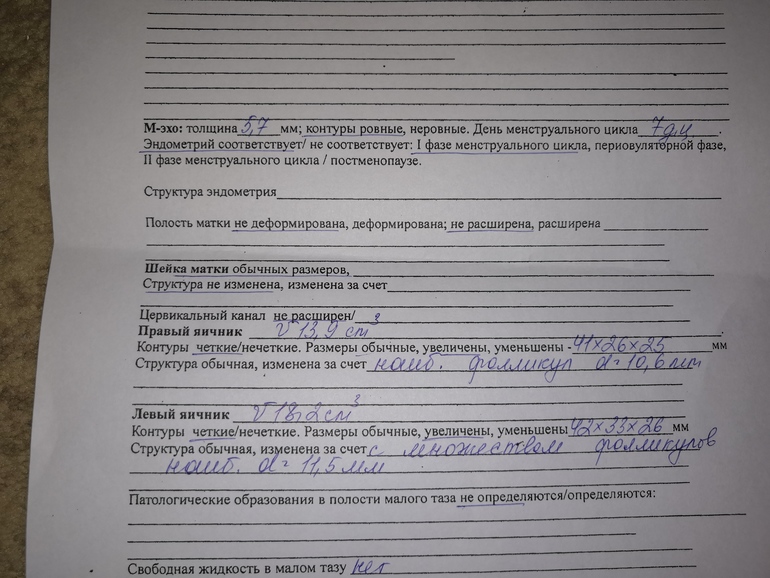 М-эхо: толщина 5,7 мм; контуры ровные, неровные. День менструального цикла 7 д.ц.
Эндометрий соответствует/ не соответствует: I фазе менструального цикла, периовуляторной фазе,
II фазе менструального цикла / постменопаузе.
Структура эндометрия
Полость матки не деформирована, деформирована; не расширена, расширена
Шейка матки обычных размеров,
Структура не изменена, изменена за счет
Цервикальный канал не расширен/
Правый яичник V 13,9 см³
Контуры четкие/нечеткие. Размеры обычные, увеличены, уменьшены - 41х26х25 мм
Структура обычная, изменена за счет наиб. фолликул d= 10,6 мм
Левый яичник V 18,2 см³
Контуры четкие/нечеткие. Размеры обычные, увеличены, уменьшены 42х33х26 мм
Структура обычная, изменена за счет с множеством фолликулов
наиб. d= 11,5 мм
Патологические образования в полости малого таза не определяются/определяются:
Свободная жидкость в малом тазу нет